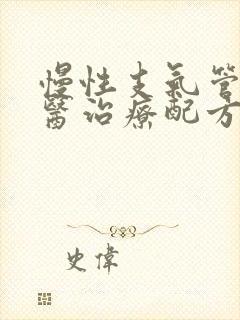 慢性支氣管
醫治療配方
史偉